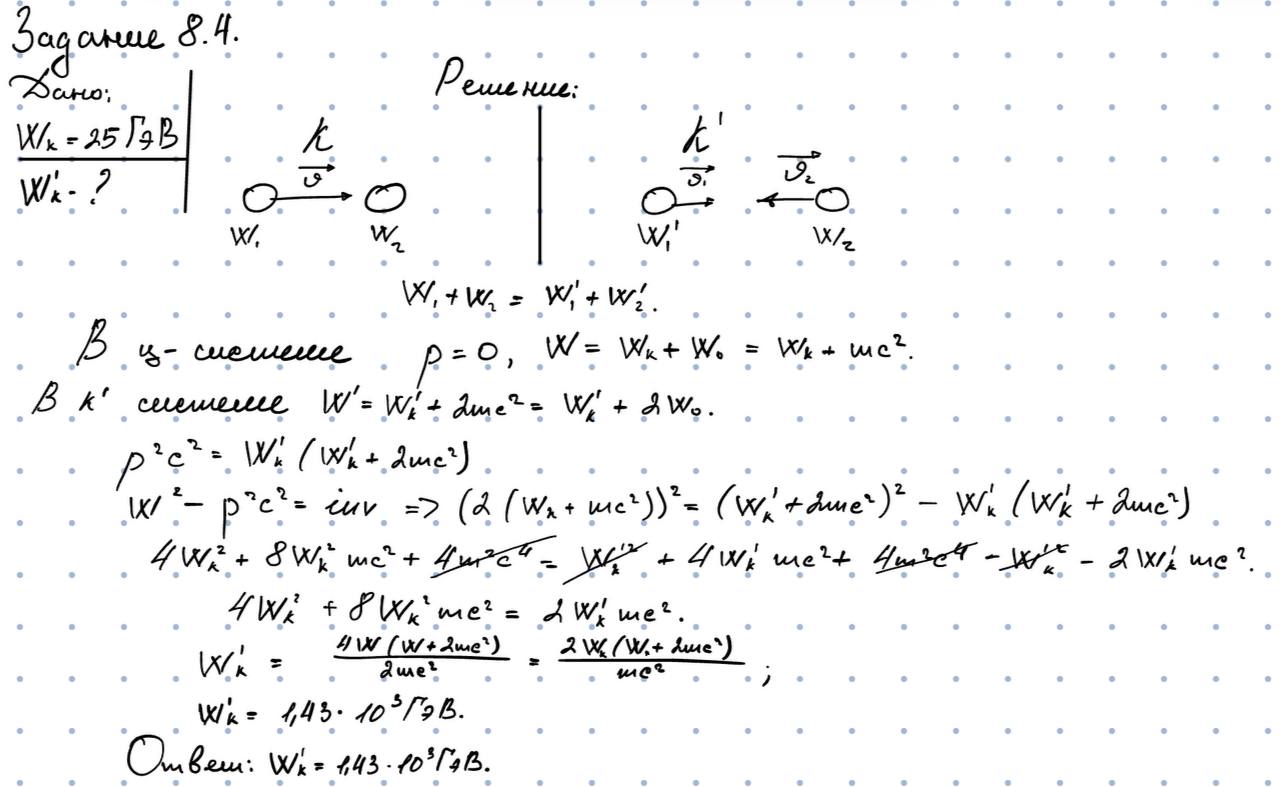 Задание 8.4.
Дано: Решение:
Wₖ = 25 ГэВ
Wₖ' - ?
K K'
ϑ ϑ₁ ϑ₂
W₁ W₂ W₁' W₂
W₁ + W₂ = W₁' + W₂'.
В ц-системе p = 0, W = Wₖ + W₀ = Wₖ + mc².
В k' системе W' = Wₖ' + 2mc² = Wₖ' + 2W₀.
p²c² = Wₖ' (Wₖ' + 2mc²)
W² - p²c² = inv => (2 (Wₖ + mc²))² = (Wₖ' + 2mc²)² - Wₖ' (Wₖ' + 2mc²)
4Wₖ² + 8Wₖ² mc² + 4m²c⁴ = Wₖ'² + 4Wₖ' mc² + 4m²c⁴ - Wₖ'² - 2Wₖ' mc².
4Wₖ² + 8Wₖ² mc² = 2Wₖ' mc².
Wₖ' = 4W (W + 2mc²) / 2mc² = 2Wₖ (Wₖ + 2mc²) / mc² ;
Wₖ' = 1,43 · 10³ ГэВ.
Ответ: Wₖ' = 1,43 · 10³ ГэВ.